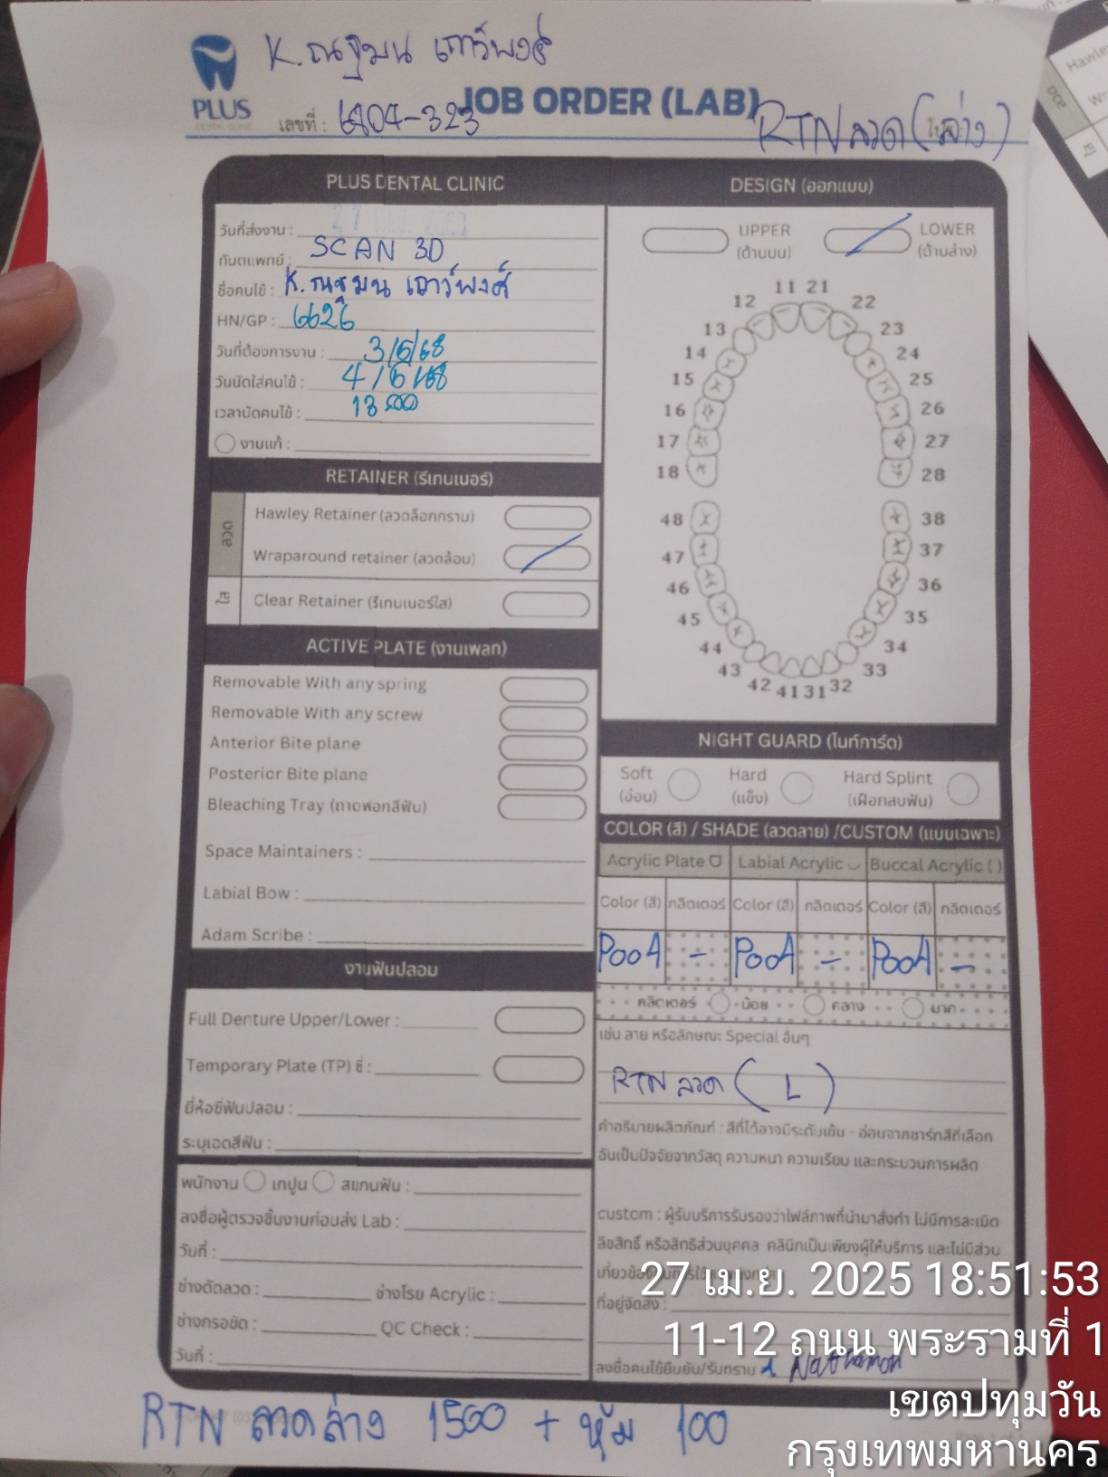 K. ณฐมน เถาว์พงศ์
PLUS
DENTAL CLINIC
JOB ORDER (LAB)
เลขที่ : 6804-323
RTN ลวด (ล่าง)
PLUS DENTAL CLINIC
วันที่ส่งงาน :
ทันตแพทย์ : SCAN 3D
ชื่อคนไข้ : K. ณฐมน เถาว์พงศ์
HN/GP : 6626
วันที่ต้องการงาน : 3/6/68
วันนัดใส่คนไข้ : 4/6/68
เวลานัดคนไข้ : 18.00
งานแก้ :
RETAINER (รีเทนเนอร์)
ลวด
Hawley Retainer (ลวดล็อกกราม)
Wraparound retainer (ลวดล้อม)
ใส
Clear Retainer (รีเทนเนอร์ใส)
ACTIVE PLATE (งานเพลท)
Removable With any spring
Removable With any screw
Anterior Bite plane
Posterior Bite plane
Bleaching Tray (ถาดฟอกสีฟัน)
Space Maintainers :
Labial Bow :
Adam Scribe :
งานฟันปลอม
Full Denture Upper/Lower :
Temporary Plate (TP) ซี่ :
ยี่ห้อซี่ฟันปลอม :
ระบุเฉดสีฟัน :
พนักงาน เทปูน สแกนฟัน :
ลงชื่อผู้ตรวจชิ้นงานก่อนส่ง Lab :
วันที่ :
ช่างดัดลวด : ช่างโรย Acrylic :
ช่างกรอขัด : QC Check :
วันที่ :
DESIGN (ออกแบบ)
UPPER
(ด้านบน)
LOWER
(ด้านล่าง)
11 21
12 22
13 23
14 24
15 25
16 26
17 27
18 28
48 38
47 37
46 36
45 35
44 34
43 33
42 41 31 32
NIGHT GUARD (ไนท์การ์ด)
Soft
(อ่อน)
Hard
(แข็ง)
Hard Splint
(เฝือกสบฟัน)
COLOR (สี) / SHADE (ลวดลาย) /CUSTOM (แบบเฉพาะ)
Acrylic Plate Labial Acrylic Buccal Acrylic ( )
Color (สี) กลิตเตอร์ Color (สี) กลิตเตอร์ Color (สี) กลิตเตอร์
P004 - P004 - P004 -
กลิตเตอร์ น้อย กลาง มาก
เช่น ลาย หรือลักษณะ Special อื่นๆ
RTN ลวด ( L )
คำอธิบายผลิตภัณฑ์ : สีที่ได้อาจมีระดับเข้ม - อ่อนจากชาร์ทสีที่เลือก
อันเป็นปัจจัยจากวัสดุ ความหนา ความเรียบ และกระบวนการผลิต
custom : ผู้รับบริการรับรองว่าไฟล์ภาพที่นำมาสั่งทำ ไม่มีการละเมิด
ลิขสิทธิ์ หรือสิทธิส่วนบุคคล คลินิกเป็นเพียงผู้ให้บริการ และไม่มีส่วน
ที่อยู่จัดส่ง :
ลงชื่อคนไข้ยืนยัน/รับทราบ Natthamon
RTN ลวดล่าง 1500 + หุ้ม 100
27 เม.ย. 2025 18:51:53
11-12 ถนน พระรามที่ 1
เขตปทุมวัน
กรุงเทพมหานคร